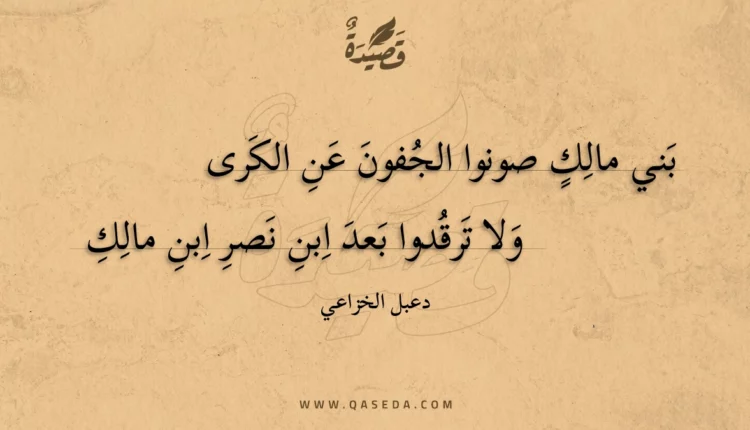 قَصِيدَةٌ
بَني مالِكٍ صونوا الجُفونَ عَنِ الكَرى
وَلا تَرقُدوا بَعدَ اِبنِ نَصرِ اِبنِ مالِكِ
دعبل الخزاعي
WWW.QASEDA.COM